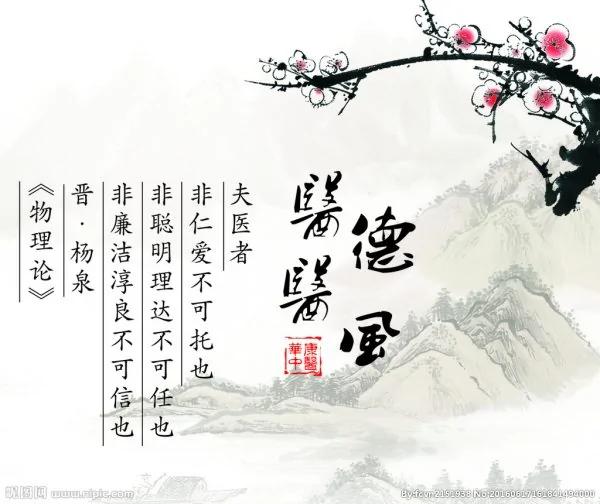 醫德
醫風
康醫
華中
夫医者
非仁爱不可托也
非聪明理达不可任也
非廉洁淳良不可信也
晋·杨泉
《物理论》
昵图网 www.nipic.com
No:20160617161841494000